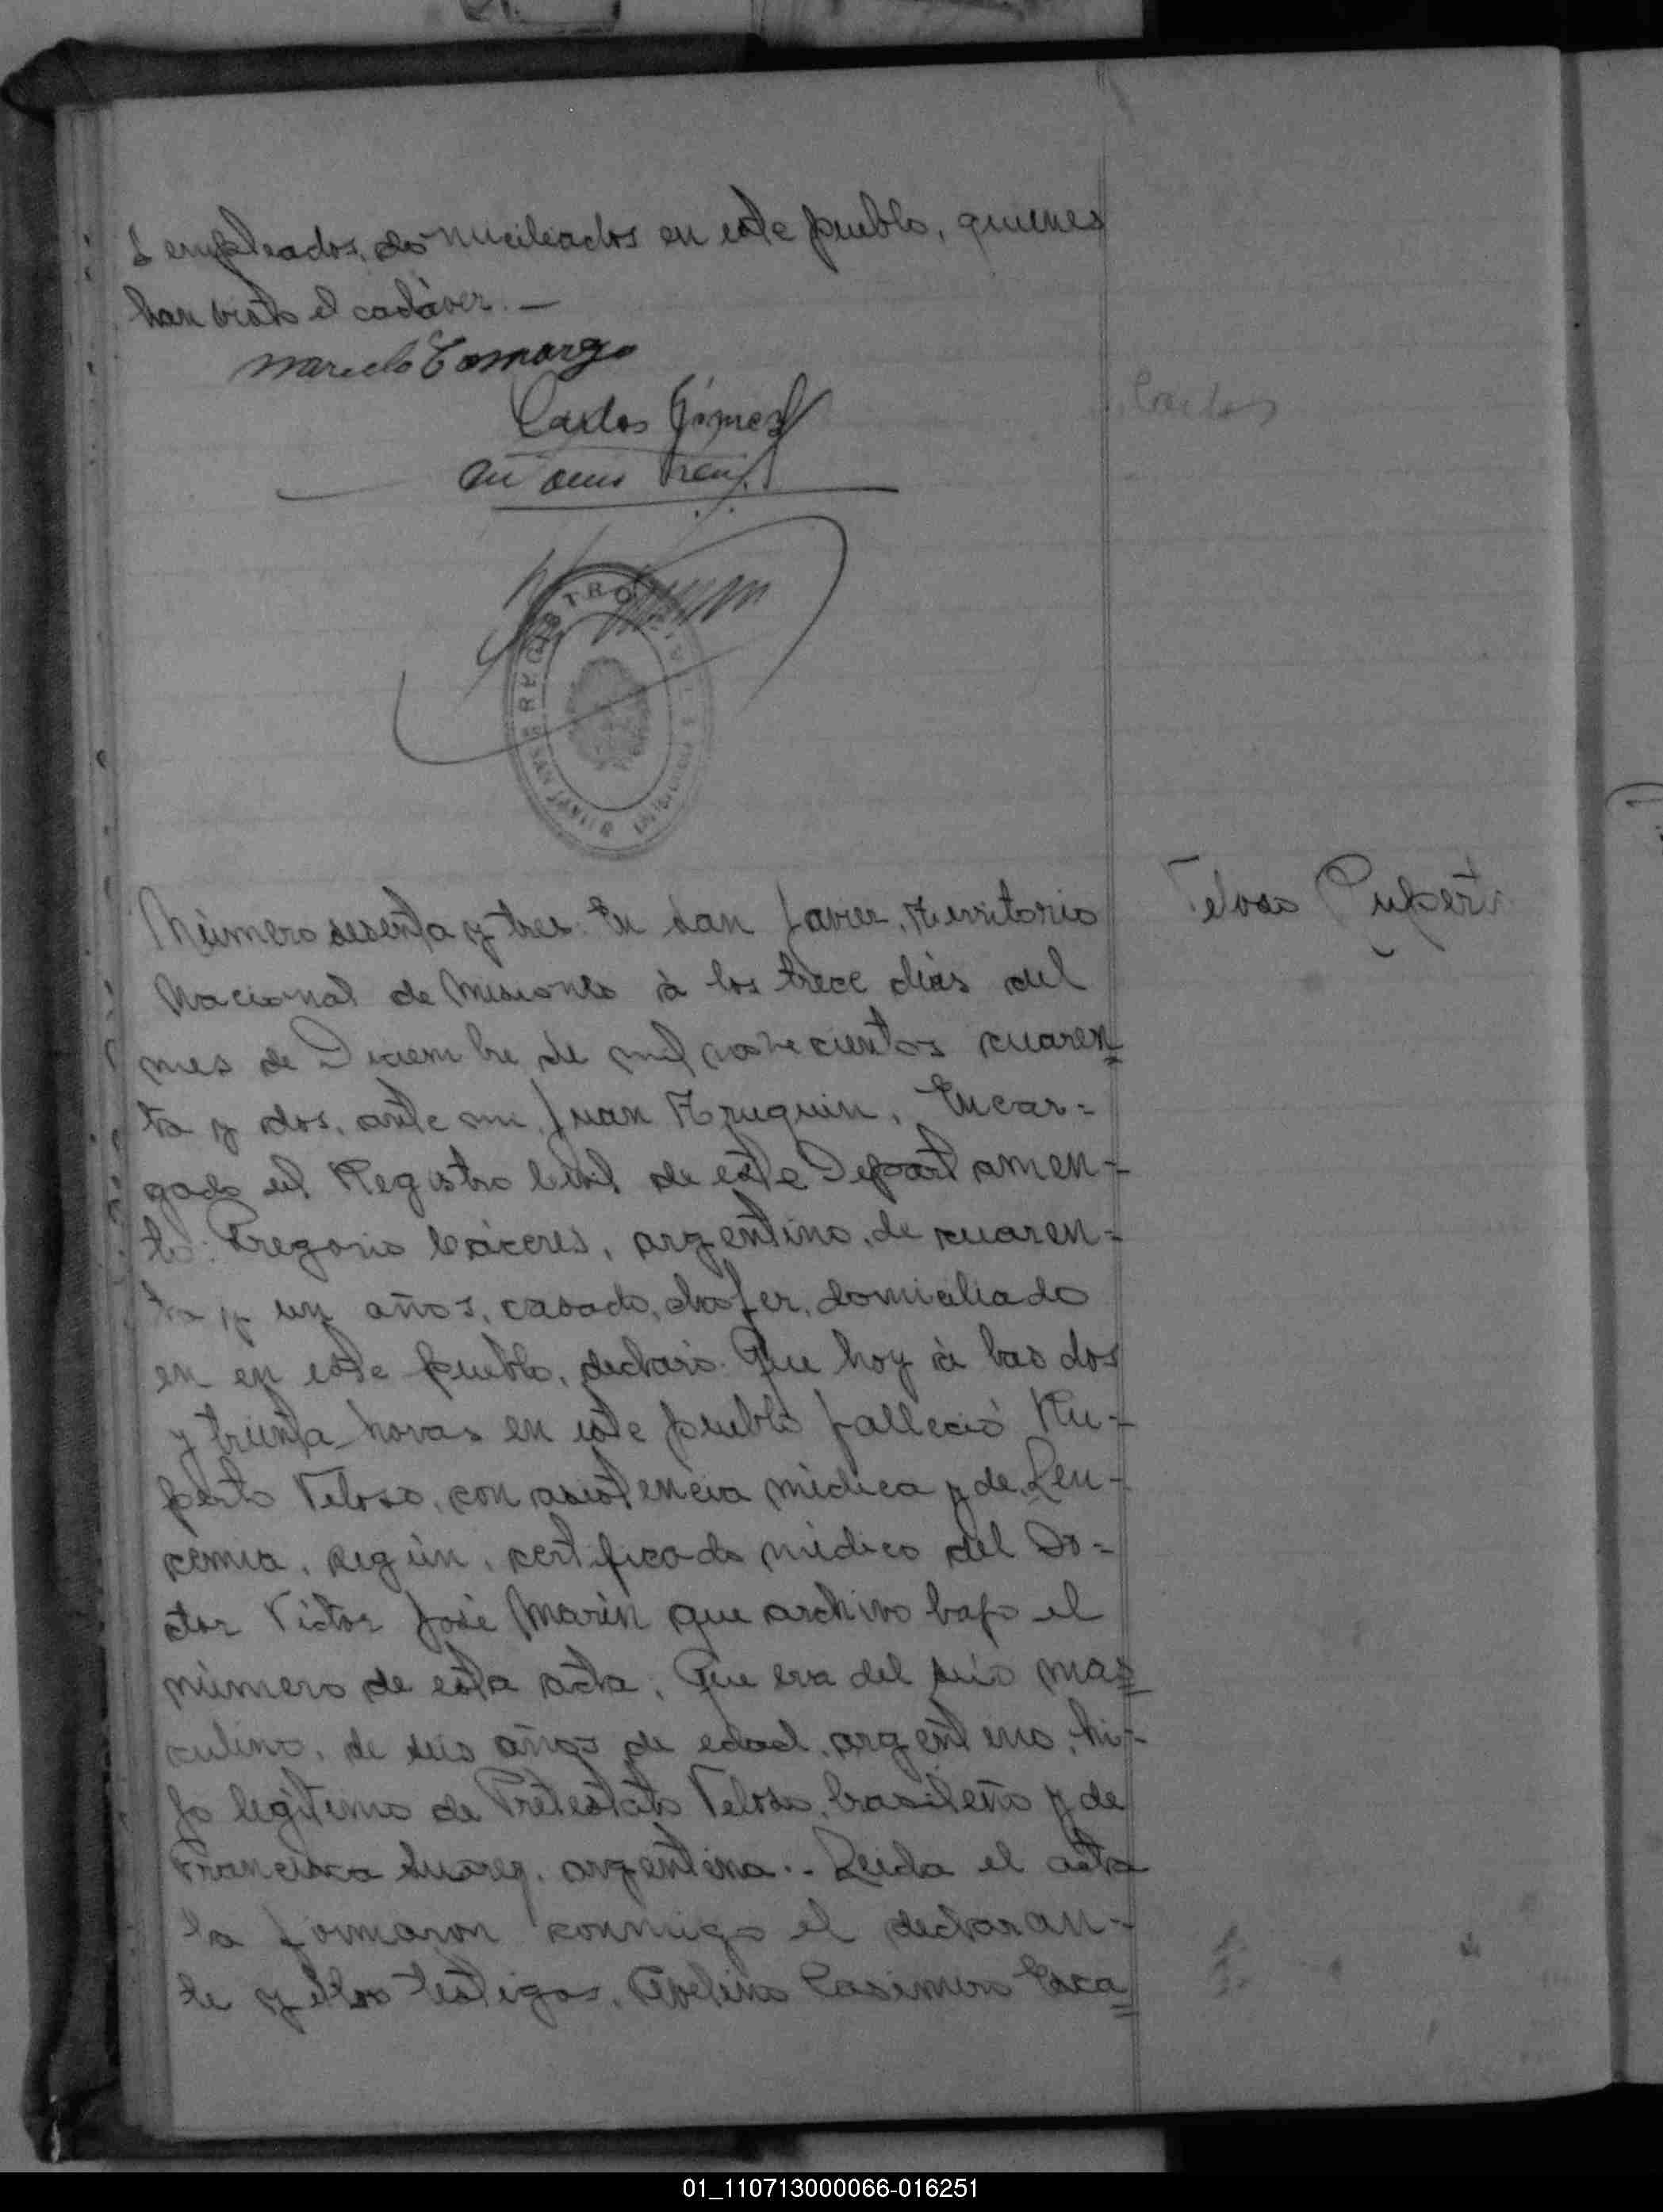 empleados, domiciliados en este pueblo, quienes
han visto el cadáver. —
Marcelo Camargo
Carlos Gómez
Carlos
REGISTRO CIVIL
SAN JAVIER
Número sesenta y tres: En San Javier, Territorio
Veloso Ruperto
Nacional de Misiones à los trece días del
mes de Diciembre de mil novecientos cuaren=
ta y dos, ante mi, Juan Truquin, Encar=
gado del Registro Civil de este Departamen=
to: Gregorio Cáceres, argentino, de cuaren=
ta y un años, casado, chofer, domiciliado
en en este pueblo, declaró: Que hoy à las dos
y treinta horas en este pueblo falleció Ru=
perto Veloso, con asistencia médica y de Leu=
cemia, según, certificado médico del Do=
ctor Víctor José Marín que archivo bajo el
número de esta acta; Que era del sexo mas=
culino, de seis años de edad, argentino, hi=
jo legítimo de Pretestato Veloso, brasileño y de
Francisca Suarez, argentina.- Leida el acta
la firmaron conmigo el declaran=
te y los testigos, Avelino Casimiro Esca=
01_110713000066-016251